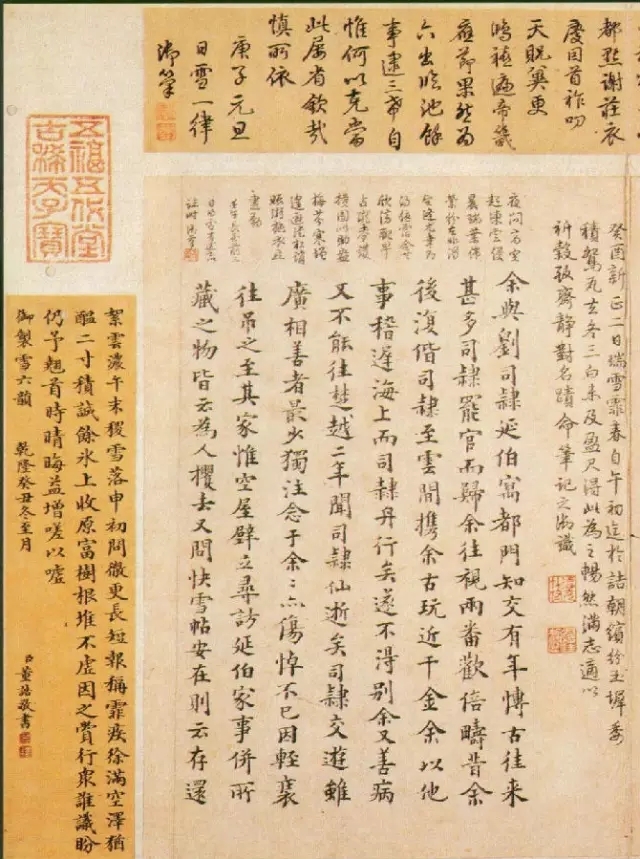 都點謝莊衣
慶因首祚吻
天貺冀更
鴻禧遍帝畿
應節果然為
六出臨池餘
事逮三希自
惟何以克當
此屢省欽哉
慎所依
庚子元旦
日雪一律
御筆
癸酉新正一日瑞雪霏春自午初迄於詰朝繽紛玉墀委
積鴛瓦去冬三白未及盈尺得此為之暢然滿志適以
祈穀致齋靜對名蹟命筆記之御識
余與劉司隸延伯寓都門知交有年博古往來
甚多司隸罷官而歸余往視兩番歡倍疇昔余
後復偕司隸至雲間攜余古玩近千金余以他
事稽遲海上而司隸舟行矣遂不得別余又善病
又不能往楚越二年聞司隸仙逝矣司隸交遊雖
廣相善者最少獨注念于余〻亦傷悼不已因輕裝
往吊之至其家惟空屋壁立尋訪延伯家事併所
藏之物皆云為人攫去又問快雪帖安在則云存還
五福五代堂
古稀天子寶
絮雲濃午末稷雪落申初問徹更長短報稱霏疾徐滿空澤猶
醞二寸積誠餘氷上收原富樹根堆不虛因之賞行衆誰議盼
仍予翹首時晴晦益增嗟以噓
御製雪六韻 乾隆癸丑冬至月
臣董誥敬書